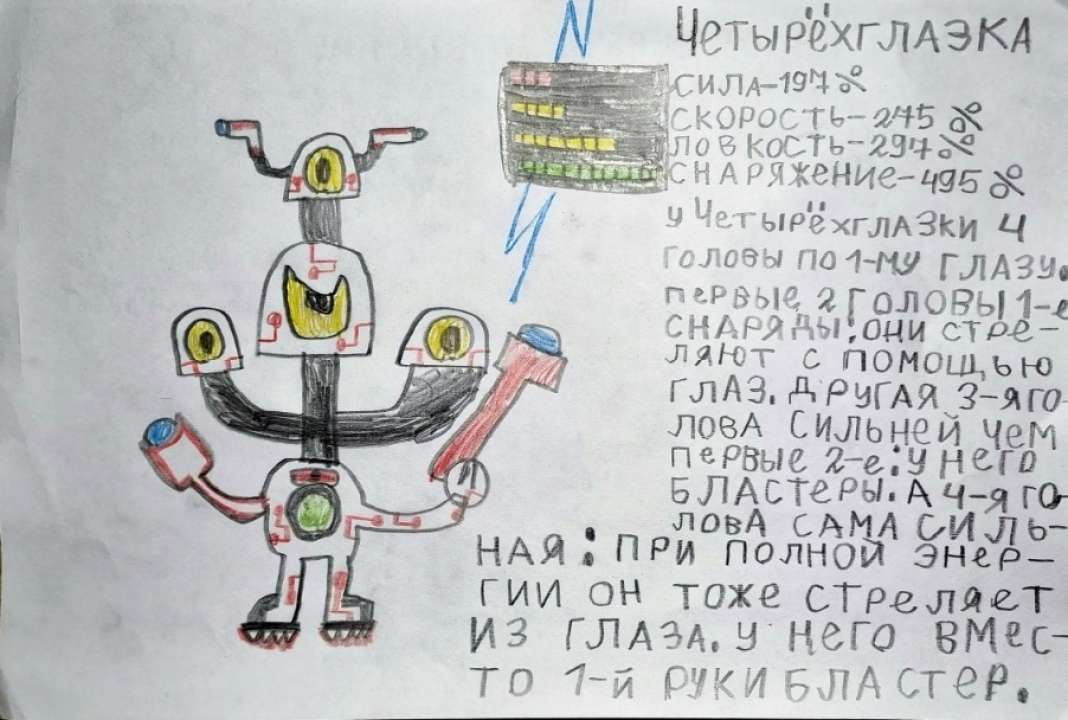 ЧЕТЫРЁХГЛАЗКА
СИЛА-197%
СКОРОСТЬ-245%
ЛОВКОСТЬ-297%
СНАРЯЖЕНИЕ-495%
У ЧЕТЫРЁХГЛАЗКИ 4
ГОЛОВЫ ПО 1-МУ ГЛАЗУ.
ПЕРВЫЕ 2 ГОЛОВЫ 1-е
СНАРЯДЫ: ОНИ СТРЕ-
ЛЯЮТ С ПОМОЩЬЮ
ГЛАЗ. ДРУГАЯ 3-Я ГО-
ЛОВА СИЛЬНЕЙ ЧЕМ
ПЕРВЫЕ 2-е: У НЕГО
БЛАСТЕРЫ. А 4-Я ГО-
ЛОВА САМА СИЛЬ-
НАЯ: ПРИ ПОЛНОЙ ЭНЕР-
ГИИ ОН ТОЖЕ СТРЕЛЯЕТ
ИЗ ГЛАЗА. У НЕГО ВМЕС-
ТО 1-Й РУКИ БЛАСТЕР.